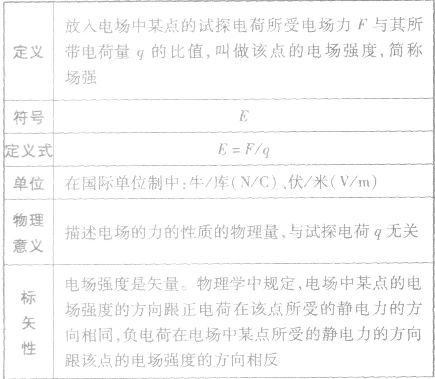 定义
放入电场中某点的试探电荷所受电场力 F 与其所
带电荷量 q 的比值,叫做该点的电场强度,简称
场强
符号
E
定义式
E=F/q
单位
在国际单位制中:牛/库(N/C)、伏/米(V/m)
物理
意义
描述电场的力的性质的物理量,与试探电荷 q 无关
标
矢
性
电场强度是矢量。物理学中规定,电场中某点的电
场强度的方向跟正电荷在该点所受的静电力的方
向相同,负电荷在电场中某点所受的静电力的方向
跟该点的电场强度的方向相反